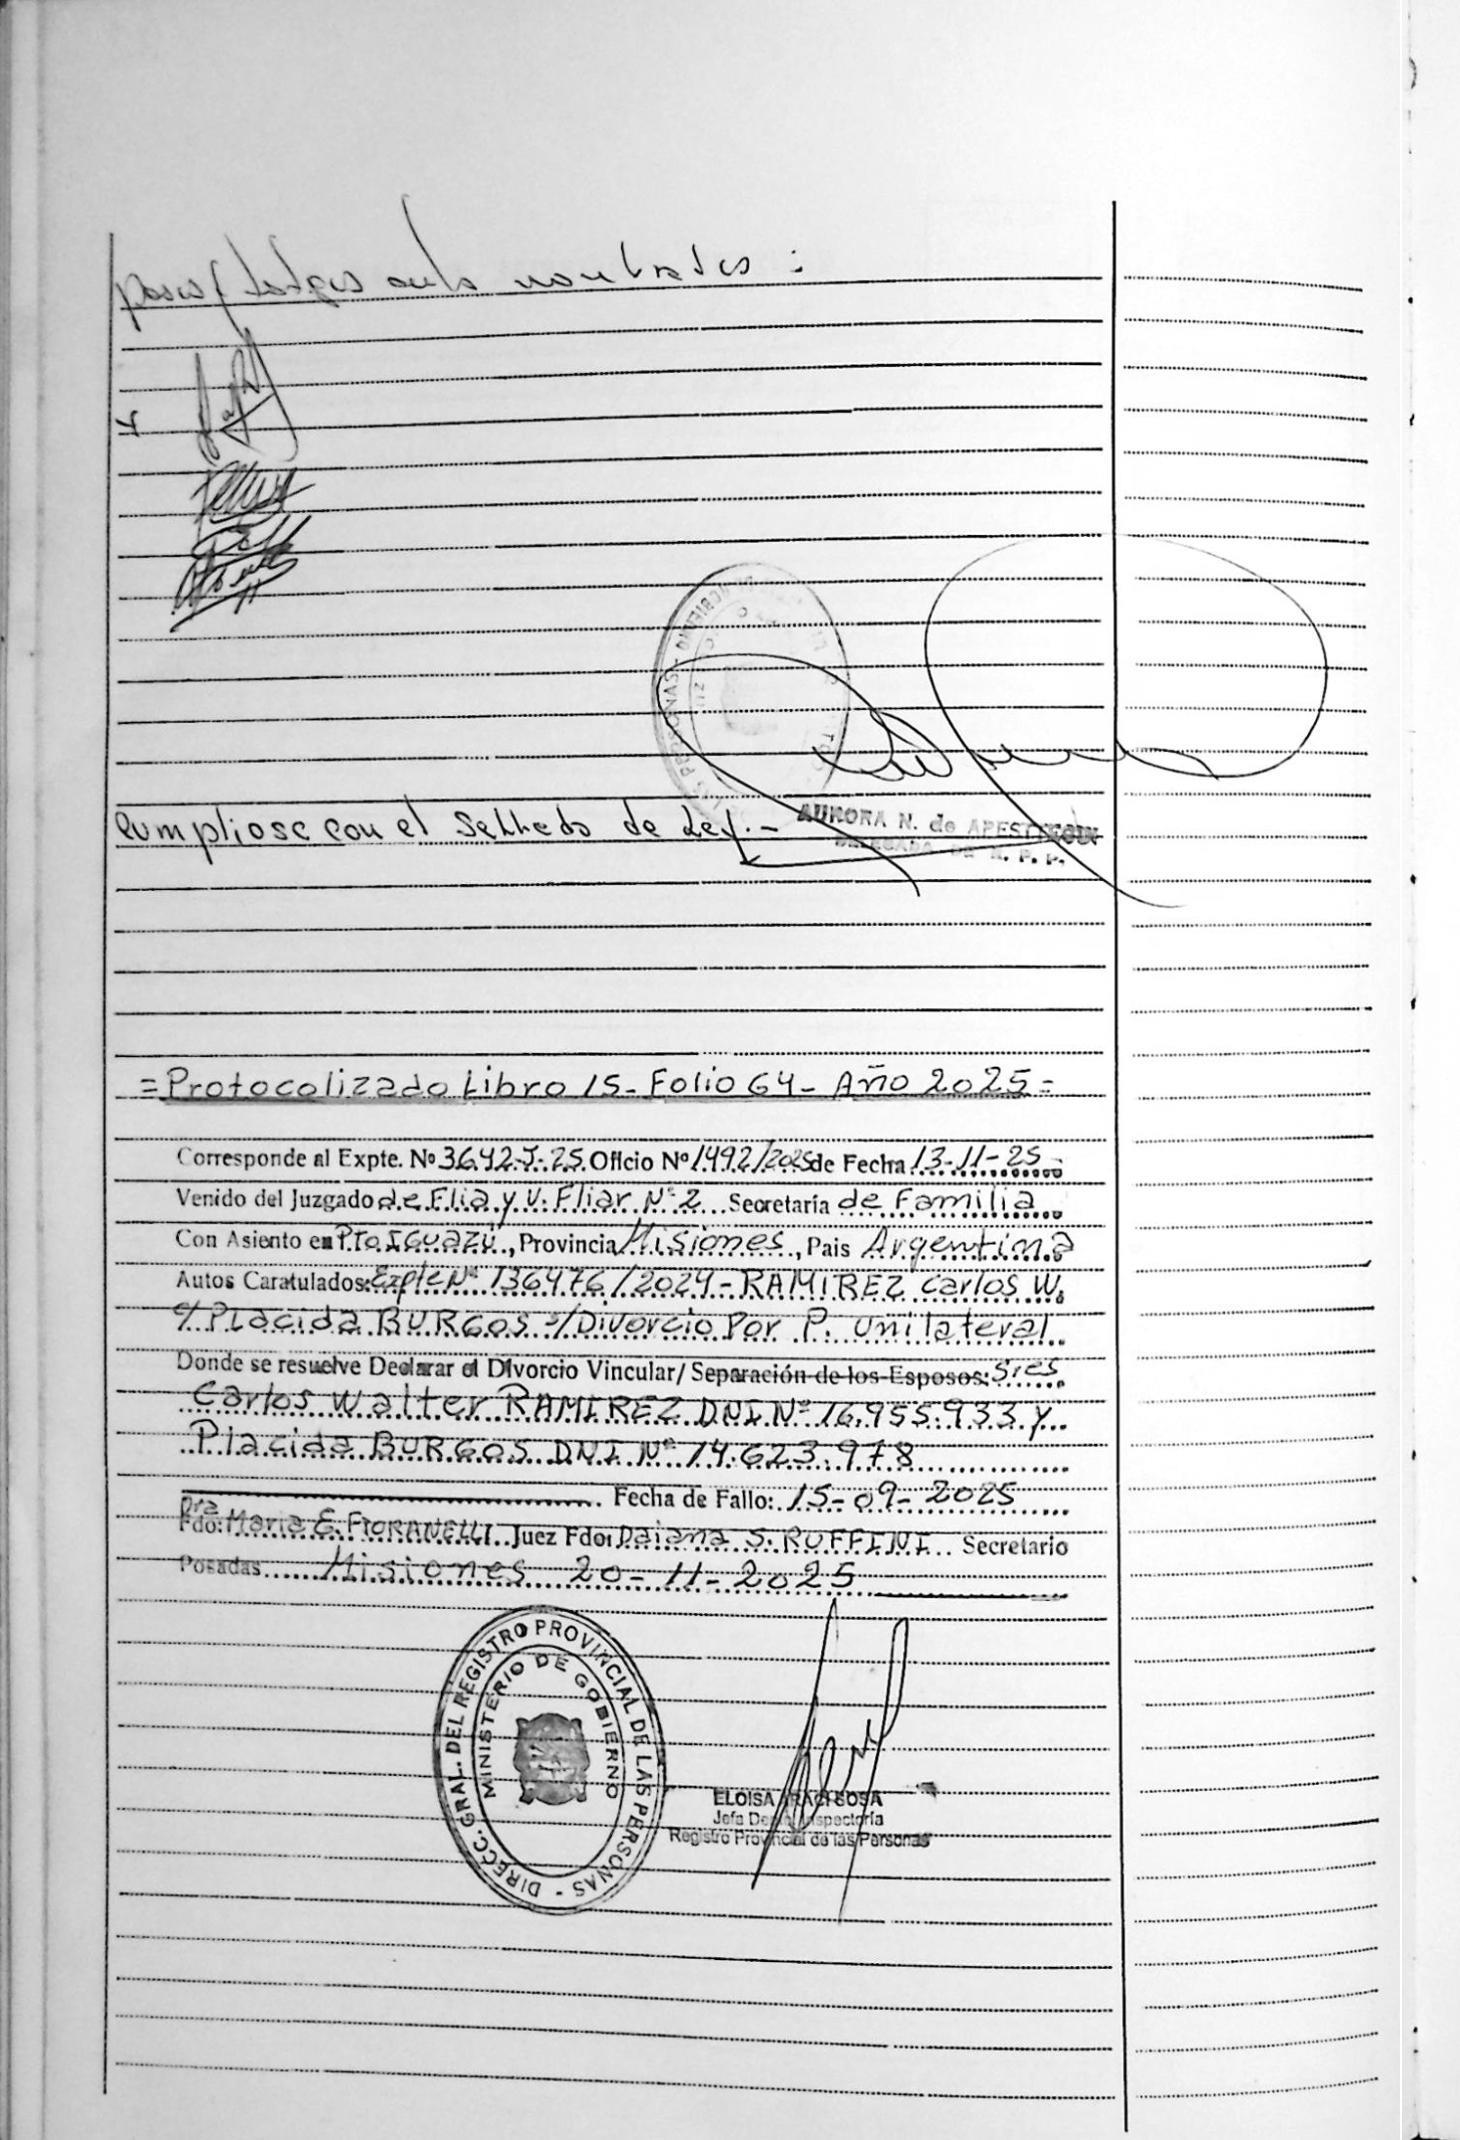 posos y testigos ante nombrados :
Cumpliose con el Sellado de Ley.-
AURORA N. de APESTEGUIA
DELEGADA DE R. P. P.
=Protocolizado Libro 15- Folio 64- Año 2025=
Corresponde al Expte. Nº 3642-J-25 Oficio Nº 1492/2025 de Fecha 13-11-25
Venido del Juzgado de Flia y V. Fliar Nº 2 Secretaría de Familia
Con Asiento en Pto IGuazú, Provincia Misiones, Pais Argentina
Autos Caratulados: Expte Nº 136476/2024- RAMIREZ Carlos W.
c/ Placida BURGOS s/Divorcio Por P. Unilateral
Donde se resuelve Declarar el Divorcio Vincular/ Separación de los Esposos: Sres
Carlos Walter RAMIREZ DNI Nº 16.955.933 y
Placida BURGOS DNI Nº 14.623.978
Fecha de Fallo: 15-09-2025
Dra
Fdo: Maria E. FIORANELLI Juez Fdo: Daiana S. RUFFINI Secretario
Posadas Misiones 20-11-2025
DIRECC. GRAL. DEL REGISTRO PROVINCIAL DE LAS PERSONAS -
MINISTERIO DE GOBIERNO
ELOISA ARACI SOSA
Jefa Inspectoría
Registro Provincial de las Personas